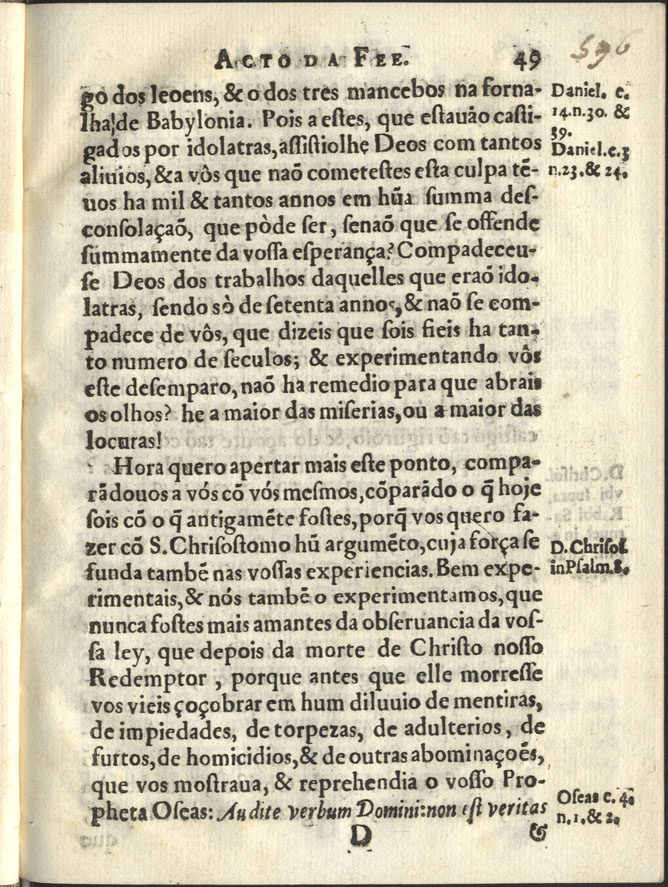 ACTO DA FEE. 49 596
go dos leoens, & o dos tres mancebos na forna-
lha de Babylonia. Pois a estes, que estauão casti-
gados por idolatras, assistiolhe Deos com tantos
aliuios, & a vôs que naõ cometestes esta culpa tẽ-
uos ha mil & tantos annos em hũa summa des-
consolaçaõ, que pòde ser, senaõ que se offende
summamente da vossa esperança? Compadeceu-
se Deos dos trabalhos daquelles que eraõ ido-
latras, sendo sò de setenta annos, & naõ se com-
padece de vôs, que dizeis que sois fieis ha tan-
to numero de seculos; & experimentando vôs
este desemparo, naõ ha remedio para que abrais
os olhos? he a maior das miserias, ou a maior das
locuras!
Hora quero apertar mais este ponto, compa-
rãdouos a vós cõ vós mesmos, cõparãdo o q̃ hoje
sois cõ o q̃ antigamẽte fostes, porq̃ vos quero fa-
zer cõ S. Chrisostomo hũ argumẽto, cuja força se
funda tambẽ nas vossas experiencias. Bem expe-
rimentais, & nós tambẽ o experimentamos, que
nunca fostes mais amantes da obseruancia da vos-
sa ley, que depois da morte de Christo nosso
Redemptor, porque antes que elle morresse
vos vieis çoçobrar em hum diluuio de mentiras,
de impiedades, de torpezas, de adulterios, de
furtos, de homicidios, & de outras abominaçoẽs,
que vos mostraua, & reprehendia o vosso Pro-
pheta Oseas: Audite verbum Domini: non est veritas
D &
Daniel. c.
14. n. 30. &
39.
Daniel. c. 3
n. 23. & 24.
D. Chrisos.
in Psalm. 8.
Oseas c. 4.
n. 1. & 2.